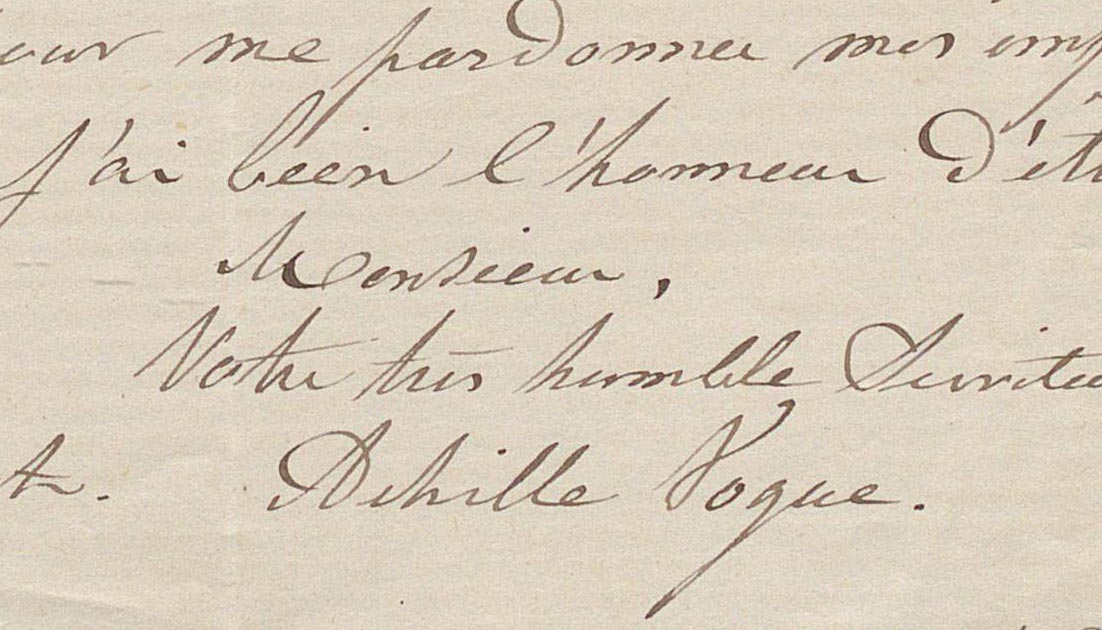 pour me pardonner mes imp
J'ai bien l'honneur d'êt
Monsieur,
Votre très humble Serviteu
Achille Vogue.